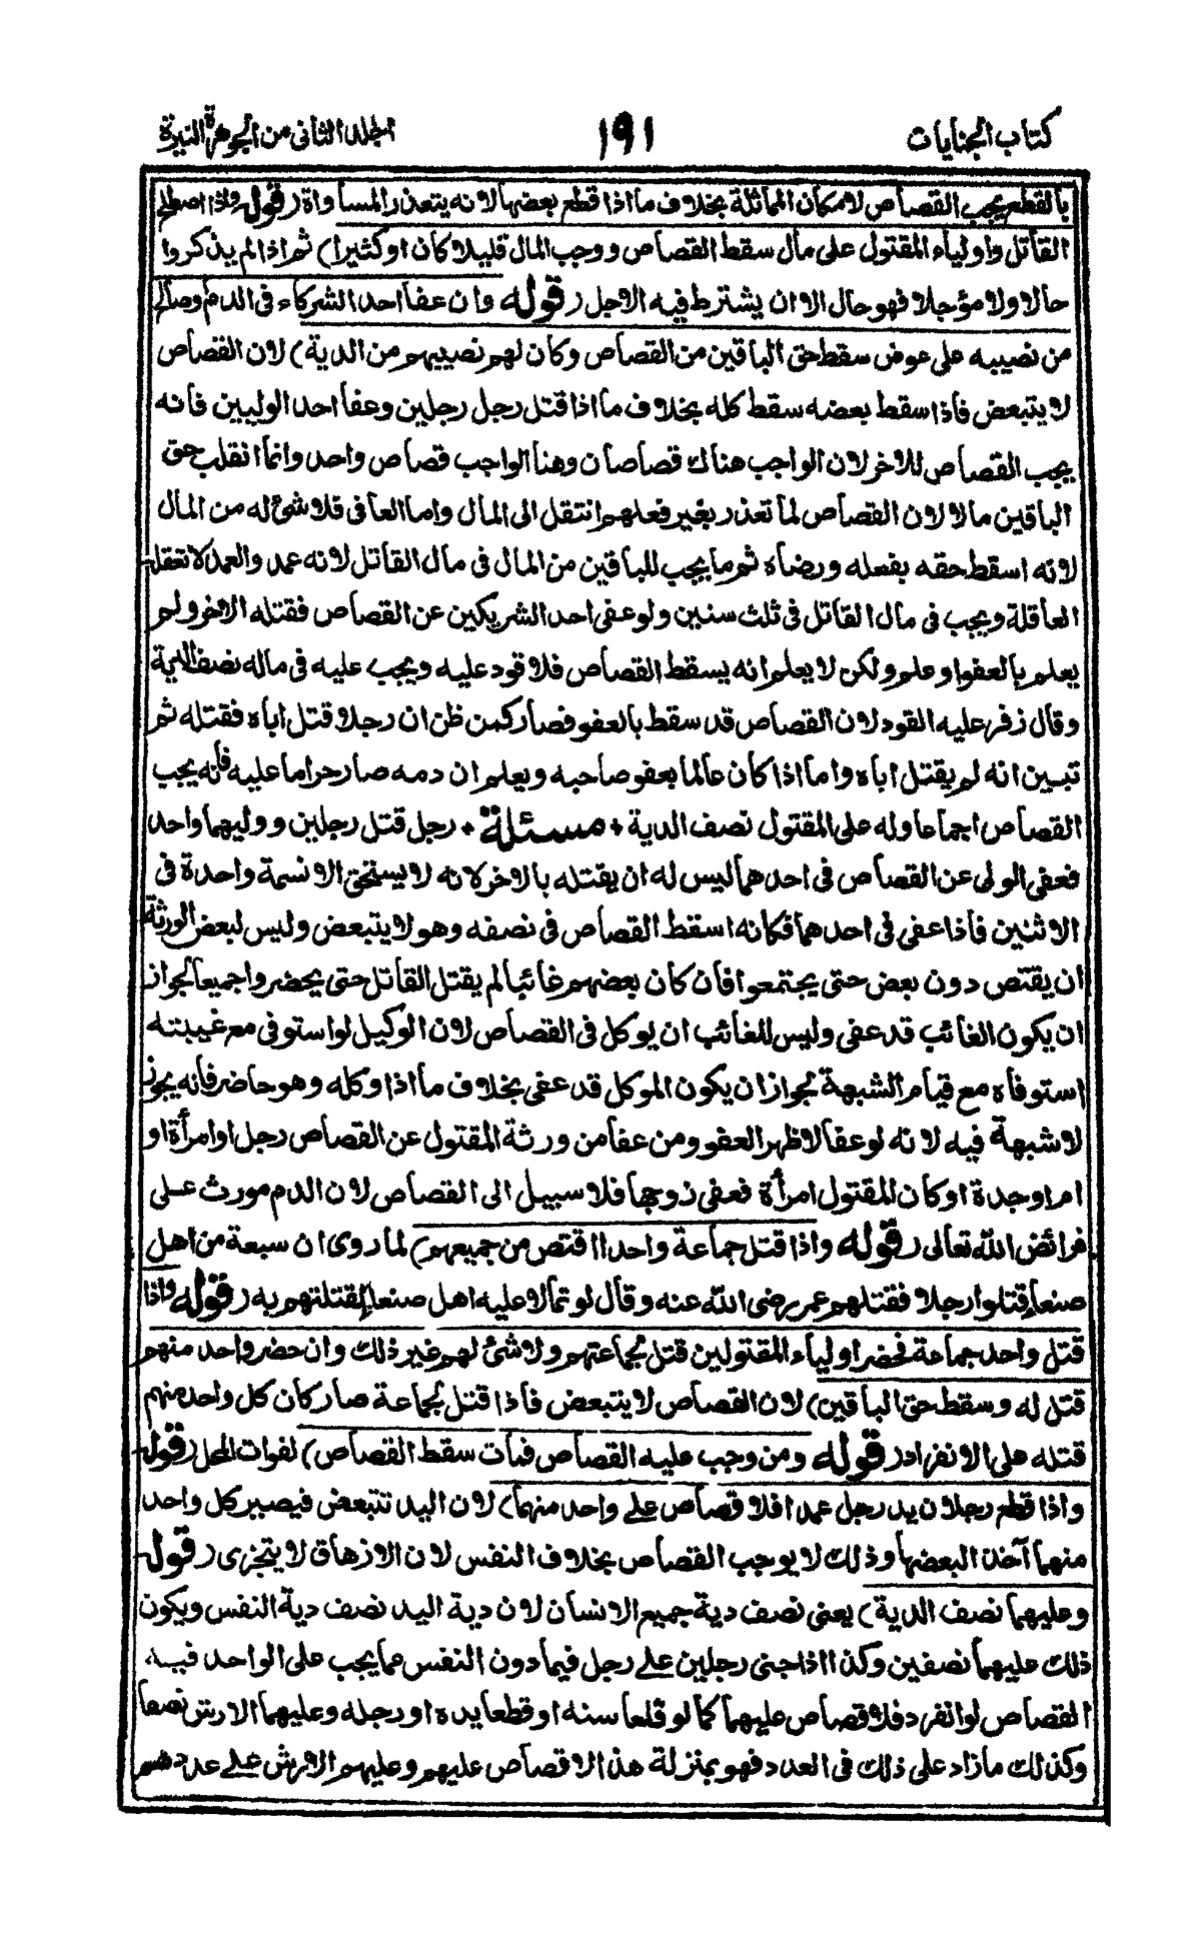 كتاب الجنايات
١٩١
المجلد الثاني من الجوهرة النيرة
بالقطع يجب القصاص لامكان المماثلة بخلاف ما اذا قطع بعضها لانه يتعذر المساواة (قوله واذا اصطلح
القاتل واولياء المقتول على مال سقط القصاص ووجب المال قليلا كان او كثيرا) ثم اذا لم يذكروا
حالا ولا مؤجلا فهو حال الا ان يشترط فيه الاجل (قوله وان عفا احد الشركاء فى الدم او صالح
من نصيبه على عوض سقط حق الباقين من القصاص وكان لهم نصيبهم من الدية) لان القصاص
لا يتبعض فاذا سقط بعضه سقط كله بخلاف ما اذا قتل رجل رجلين وعفا احد الوليين فانه
يجب القصاص للاخر لان الواجب هناك قصاصان وهنا الواجب قصاص واحد وانما انقلب حق
الباقين مالا لان القصاص لما تعذر بغير فعلهم انتقل الى المال واما العافى فلا شئ له من المال
لانه اسقط حقه بفعله ورضاه ثم ما يجب للباقين من المال فى مال القاتل لانه عمد والعمد لا تعقله
العاقلة ويجب فى مال القاتل فى ثلث سنين ولو عفى احد الشريكين عن القصاص فقتله الاخر ولم
يعلم بالعفو او علم ولكن لا يعلم انه يسقط القصاص فلا قود عليه ويجب عليه فى ماله نصف الدية
وقال زفر عليه القود لان القصاص قد سقط بالعفو فصار كمن ظن ان رجلا قتل اباه فقتله ثم
تبين انه لم يقتل اباه واما اذا كان عالما بعفو صاحبه ويعلم ان دمه صار حراما عليه فانه يجب
القصاص اجماعا وله على المقتول نصف الدية * مسئلة * رجل قتل رجلين ووليهما واحد
فعفى الولى عن القصاص فى احدهما ليس له ان يقتله بالاخر لانه لا يستحق الا نسمة واحدة فى
الاثنين فاذا عفى فى احدهما فكانه اسقط القصاص فى نصفه وهو لا يتبعض وليس لبعض الورثة
ان يقتص دون بعض حتى يجتمعوا فان كان بعضهم غائبا لم يقتل القاتل حتى يحضروا جميعا لجواز
ان يكون الغائب قد عفى وليس للغائب ان يوكل فى القصاص لان الوكيل لو استوفى مع غيبته
استوفاه مع قيام الشبهة لجواز ان يكون الموكل قد عفى بخلاف ما اذا وكله وهو حاضر فانه يجوز
لا شبهة فيه لانه لو عفا لاظهر العفو ومن عفا من ورثة المقتول عن القصاص رجل او امرأة او
ام او جدة او كان المقتول امرأة فعفى زوجها فلا سبيل الى القصاص لان الدم مورث على
فرائض الله تعالى (قوله واذا قتل جماعة واحدا اقتص من جميعهم) لما روى ان سبعة من اهل
صنعاء قتلوا رجلا فقتلهم عمر رضى الله عنه وقال لو تمالا عليه اهل صنعاء لقتلتهم به (قوله واذا
قتل واحد جماعة فحضر اولياء المقتولين قتل لجماعتهم ولا شئ لهم غير ذلك وان حضر واحد منهم
قتل له وسقط حق الباقين) لان القصاص لا يتبعض فاذا قتل لجماعة صار كان كل واحد منهم
قتله على الانفراد (قوله ومن وجب عليه القصاص فمات سقط القصاص) لفوات المحل (قوله
واذا قطع رجلان يد رجل عمدا فلا قصاص على واحد منهما) لان اليد تتبعض فيصير كل واحد
منهما آخذا لبعضها وذلك لا يوجب القصاص بخلاف النفس لان الازهاق لا يتجزى (قوله
وعليهما نصف الدية) يعنى نصف دية جميع الانسان لان دية اليد نصف دية النفس ويكون
ذلك عليهما نصفين وكذا اذا جنى رجلين على رجل فيما دون النفس مما يجب على الواحد فيه
القصاص لو انفرد فلا قصاص عليهما كما لو قلعا سنه او قطعا يده او رجله وعليهما الارش نصفا
وكذلك ما زاد على ذلك فى العدد فهو بمنزلة هذا لا قصاص عليهم وعليهم الارش على عددهم